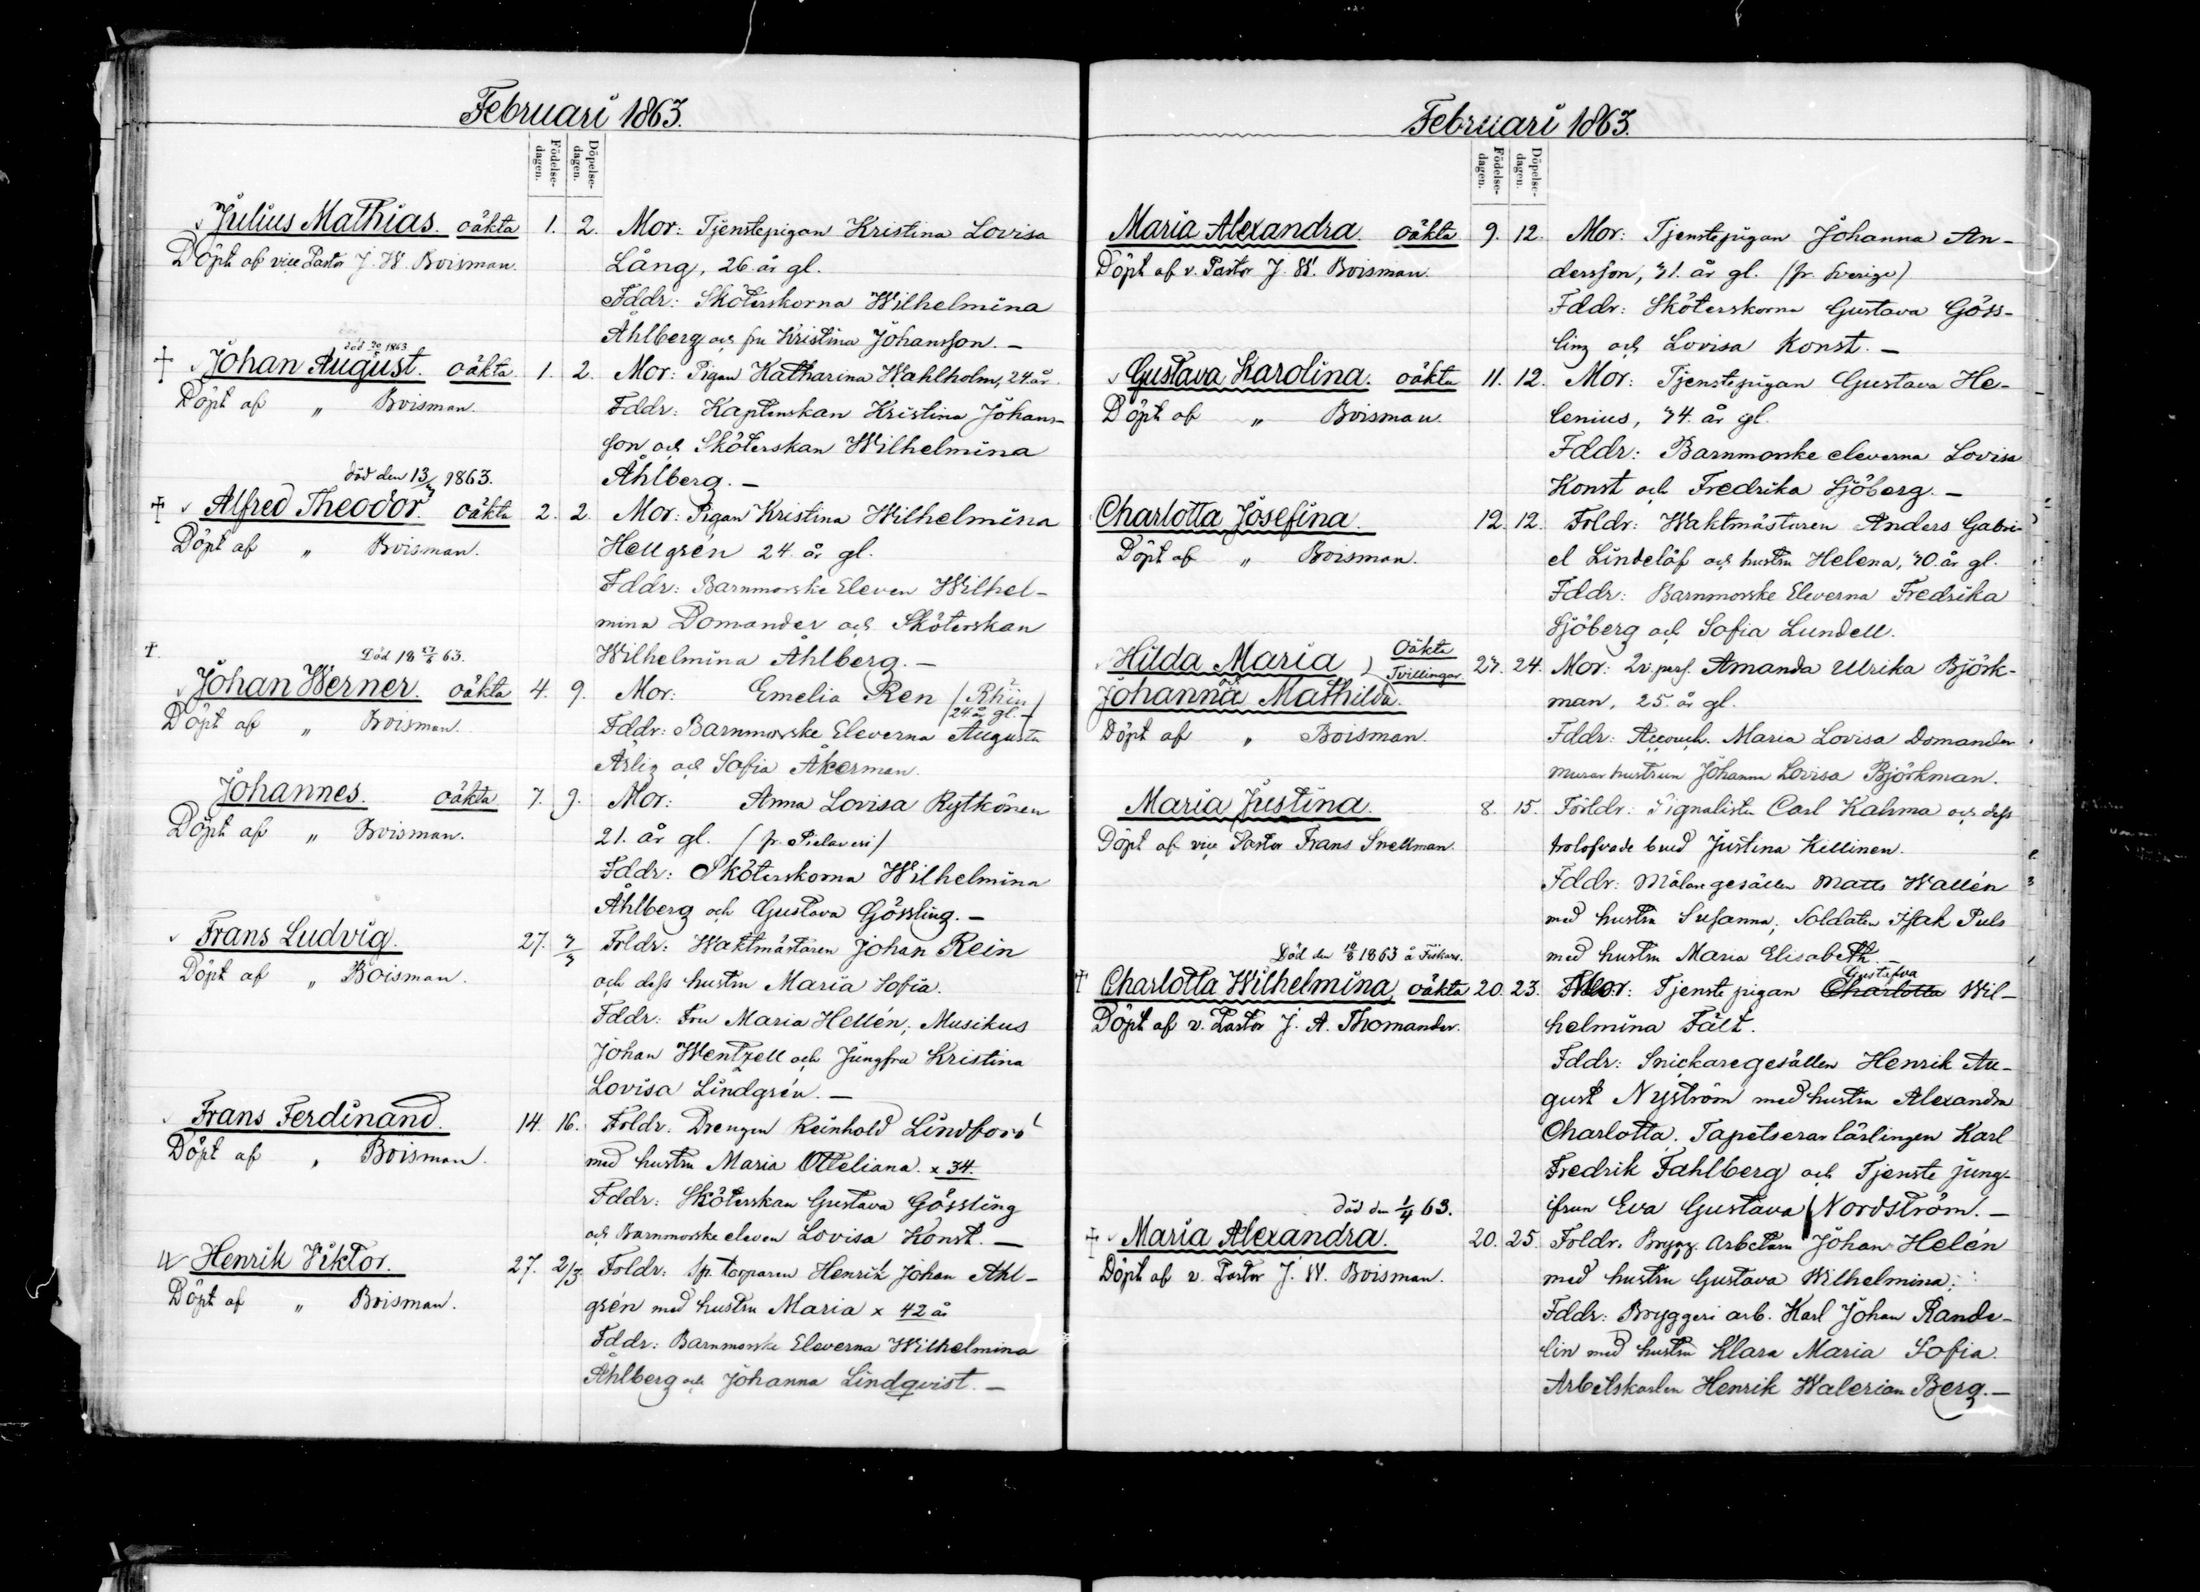 Februari 1863.
Födelse-dagen.
Döpelse-dagen.
Julius Mathias. oäkta 1. 2. Mor: Tjenstepigan Kristina Lovisa
Döpt af vice Pastor J. W. Boisman. Lång, 26 år gl.
Fddr: Sköterskorna Wilhelmina
Åhlberg och fru Kristina Johansson. —
död 1863
Johan August. oäkta 1. 2. Mor: Pigan Katharina Wahlholm, 24 år.
Döpt af " Boisman. Fddr: Kaptenskan Kristina Johans-
son och Sköterskan Wilhelmina
Åhlberg. —
död den 13/3 1863.
Alfred Theodor. oäkta 2. 2. Mor: Pigan Kristina Wilhelmina
Döpt af " Boisman. Hellgrén 24 år gl.
Fddr: Barnmorske Eleven Wilhel-
mina Domander och Sköterskan
Wilhelmina Åhlberg. —
Död 18 27/6 63.
Johan Werner. oäkta 4. 9. Mor: Emelia Ren (Rhün)
24 år gl. —
Döpt af " Boisman. Fddr: Barnmorske Eleverna Augusta
Ärlig och Sofia Åkerman.
Johannes. oäkta 7. 9. Mor: Anna Lovisa Rytkönen
Döpt af " Boisman. 21. år gl. (fr. Pielavesi)
Fddr: Sköterskorna Wilhelmina
Åhlberg och Gustava Gössling. —
Frans Ludvig. 27. 3/3 Frldr: Waktmästaren Johan Rein
Döpt af " Boisman. och dess hustru Maria Sofia.
Fddr: Fru Maria Hellén, Musikus
Johan Wentzell och Jungfru Kristina
Lovisa Lindgrén. —
Frans Ferdinand. 14. 16. Frldr. Drengen Reinhold Lindfors
Döpt af " Boisman. med hustru Maria Otteliana. x 34.
Fddr: Sköterskan Gustava Gössling
och Barnmorske eleven Lovisa Konst. —
Henrik Viktor. 27. 2/3 Frldr: Sp. torparen Henrik Johan Ahl-
Döpt af " Boisman. grén med hustru Maria x 42 år
Fddr: Barnmorske Eleverna Wilhelmina
Åhlberg och Johanna Lindqvist. —
Februari 1863.
Födelse-dagen.
Döpelse-dagen.
Maria Alexandra. oäkta 9. 12. Mor: Tjenstepigan Johanna An-
Döpt af v. Pastor J. W. Boisman. dersson, 31. år gl. (fr. Sverige)
Fddr: Sköterskorna Gustava Göss-
ling och Lovisa Konst. —
Gustava Karolina. oäkta 11. 12. Mor: Tjenstepigan Gustava He-
Döpt af " Boisman. lenius, 34. år gl.
Fddr: Barnmorske eleverna Lovisa
Konst och Fredrika Sjöberg. —
Charlotta Josefina. 12. 12. Frldr: Waktmästaren Anders Gabri-
Döpt af " Boisman. el Lindelöf och hustru Helena, 30 år gl.
Fddr: Barnmorske Eleverna Fredrika
Sjöberg och Sofia Lundell.
Hilda Maria Oäkta Tvillingar. 23. 24. Mor: Amanda Ulrika Björk-
Johanna Mathilda. man, 25. år gl.
Döpt af " Boisman. Fddr: Accouch. Maria Lovisa Domander
murar hustrun Johanna Lovisa Björkman.
Maria Justina. 8. 15. Förldr: Signalisten Carl Kahma och dess
Döpt af vice Pastor Frans Snellman. trolofvade brud Justina Killinen.
Fddr: Målaregesällen Matts Wallén
med hustru Susanna, Soldaten Isak Puls
med hustru Maria Elisabeth. —
Död den 1863 å Fiskars.
Charlotta Wilhelmina oäkta 20. 23. Mor: Tjenste pigan Charlotta Gustafva Wil-
Döpt af v. Pastor J. A. Thomander. helmina Fält.
Fddr: Snickaregesällen Henrik Au-
gust Nyström med hustru Alexandra
Charlotta. Tapetserarlärlingen Karl
Fredrik Fahlberg och Tjenste jung-
frun Eva Gustava Nordström. —
död den 1/4 63.
Maria Alexandra. 20. 25. Frldr. Brygg. Arbetaren Johan Helén
Döpt af v. Pastor J. W. Boisman. med hustru Gustava Wilhelmina.
Fddr: Bryggeri arb. Karl Johan Rande-
lin med hustru Klara Maria Sofia.
Arbetskarlen Henrik Walerian Berg. —